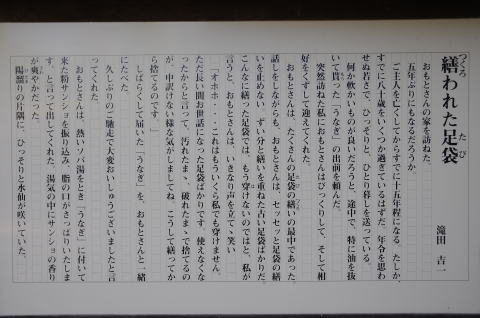 繕われた足袋
つくろ
たび
滝田 吉一
おもとさんの家を訪ねた。
五年ぶりにもなるだろうか。
ご主人を亡くしてからすでに十五年程になる、たしか、
すでに八十歳をいくつか過ぎているはずだ、年令を思わ
せぬ若さで、ひっそりと、ひとり暮しを送っている。
何か軟かいものが良いだろうと、途中で、特に油を抜
いて貰った「うなぎ」の出前を頼んだ。
突然訪ねた私におもとさんはびっくりして、そして相
好をくずして迎えてくれた。
おもとさんは、たくさんの足袋の繕いの最中であった
話しをしながらも、おもとさんは、セッセッと足袋の繕
いを止めない、ずい分と繕いを重ねた古い足袋ばかりだ
こんなに繕った足袋では、もう穿けないのではと、私が
言うと、おもとさんは、いきなり声を立てゝ笑い
「オホホ・・・これはもういくら私でも穿けません、
ただ長い間お世話になった足袋ばかりです、使えなくな
ったからと言って、汚れたまゝ、破れたまゝで捨てるの
が、申訳けない様な気がしましてね、こうして繕ってか
ら捨てるのです。」
しばらくして届いた「うなぎ」を、おもとさんと一緒
にたべた。
久しぶりのご馳走で大変おいしゅうございましたと言
ってくれた。
おもとさんは、熱いソバ湯をとき「うなぎ」に付いて
来た粉サンショを振り込み、脂の口がさっぱりいたしま
す、と言って出してくれた、湯気の中にサンショの香り
が爽やかだった。
陽溜りの片隅に、ひっそりと水仙が咲いていた。